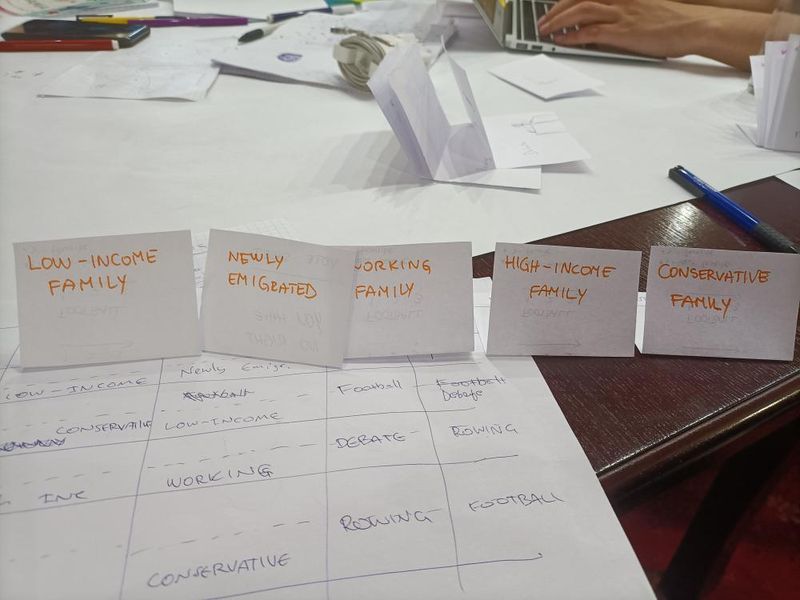 LOW-INCOME
FAMILY
NEWLY
EMIGRATED
WORKING
FAMILY
HIGH-INCOME
FAMILY
CONSERVATIVE
FAMILY
LOW-INCOME
Newly Emigr.
Football
Football
Debate
CONSERVATIVE
LOW-INCOME
DEBATE
ROWING
INK
WORKING
ROWING
FOOTBALL
CONSERVATIVE